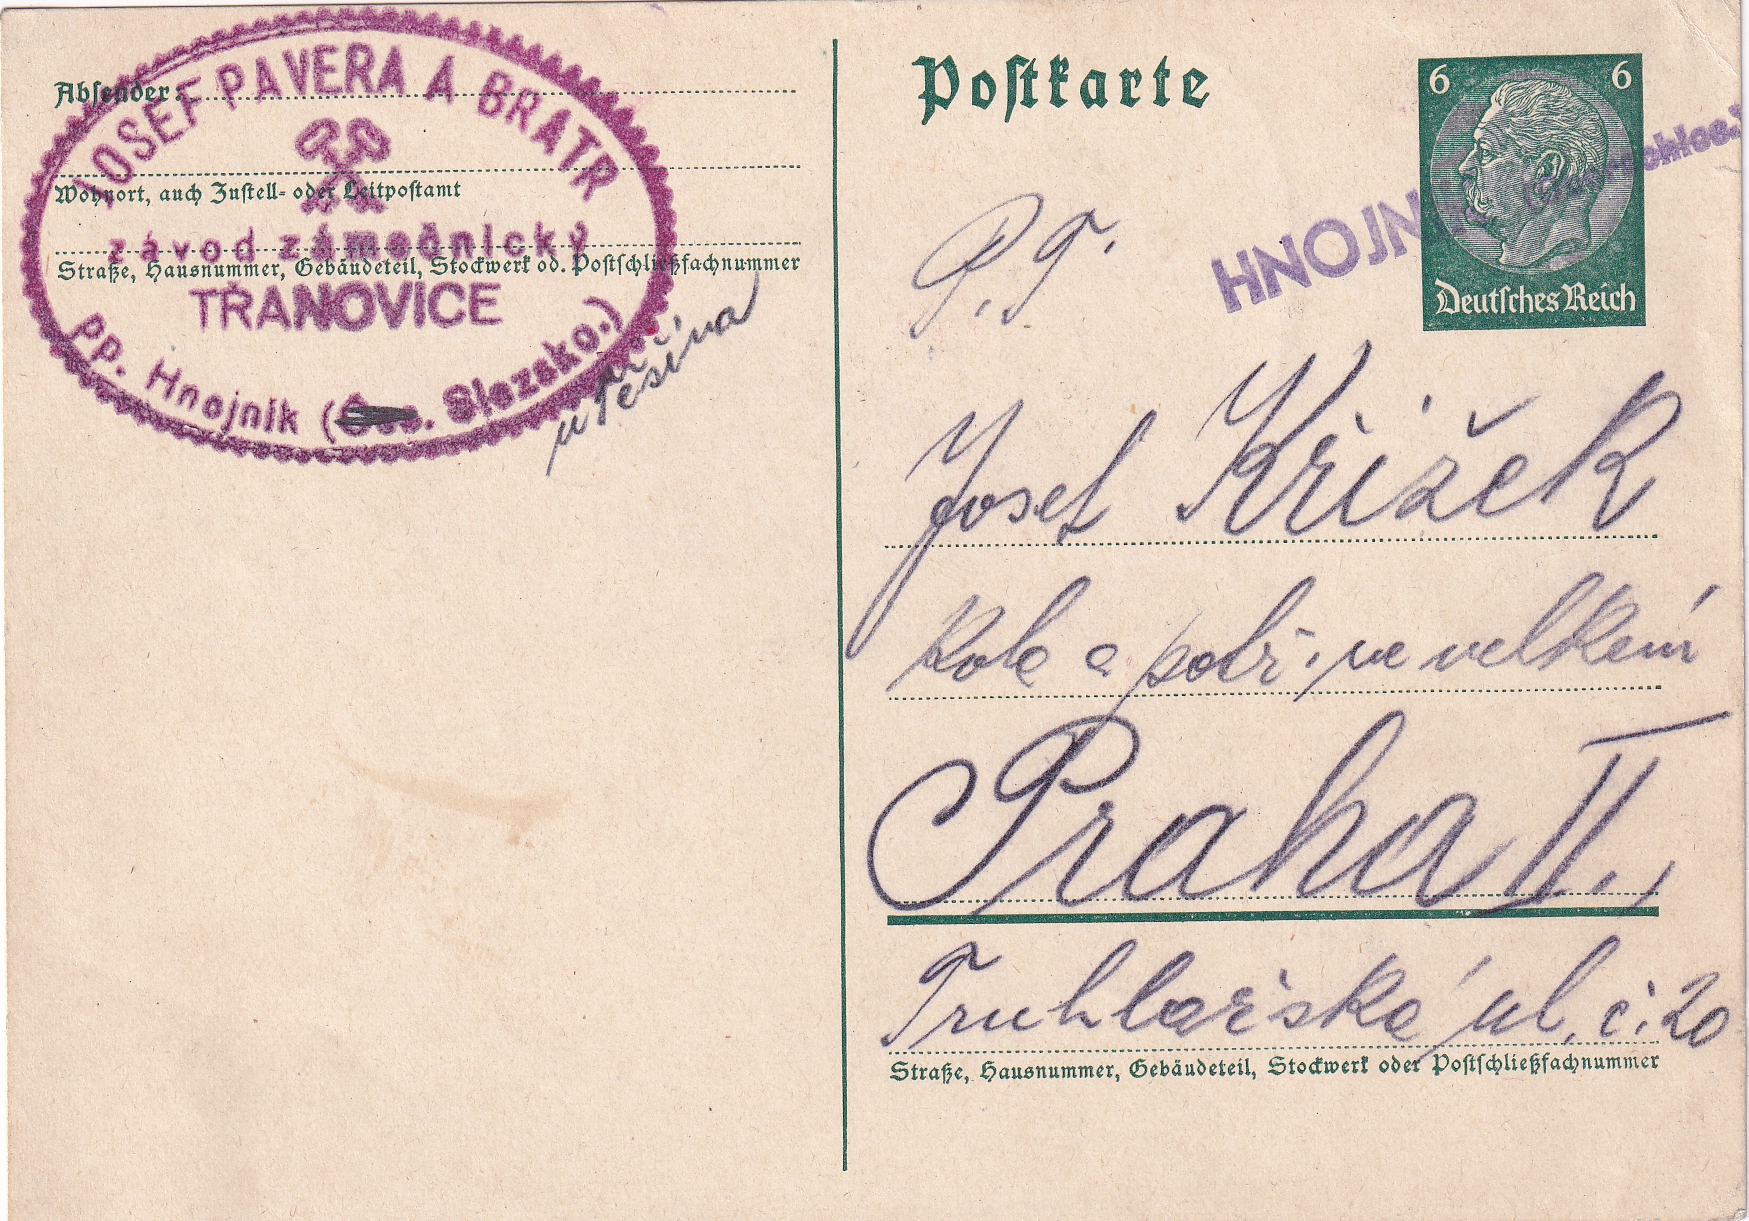 JOSEF PAVERA A BRATR
Absender:
Wohnort, auch Zustell- oder Leitpostamt
závod zámečnický
Straße, Hausnummer, Gebäudeteil, Stockwerk od. Postschließfachnummer
TŘANOVICE
pp. Hnojník ( Slezsko.)
u Těšína
Postkarte
6 6
Deutsches Reich
HNOJN
P. T.
Josef Křížek
Kola a potř. ve velkém
Praha II.,
Truhlářská ul. č. 20
Straße, Hausnummer, Gebäudeteil, Stockwerk oder Postschließfachnummer